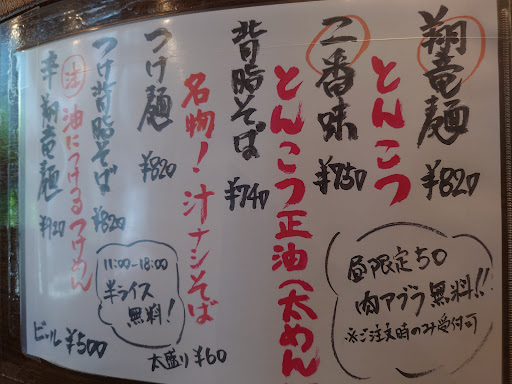 翔竜麺
とんこつ
¥820
二番味
¥750
とんこつ正油(太めん
背脂そば
¥740
名物!汁ナシそば
つけ麺
¥820
つけ背脂そば
¥820
注 油につけるつけめん
辛翔竜麺
昼限定50
肉アブラ無料!!
※ご注文時のみ受付可
11:00-18:00
半ライス
無料!
大盛り¥60
ビール¥500